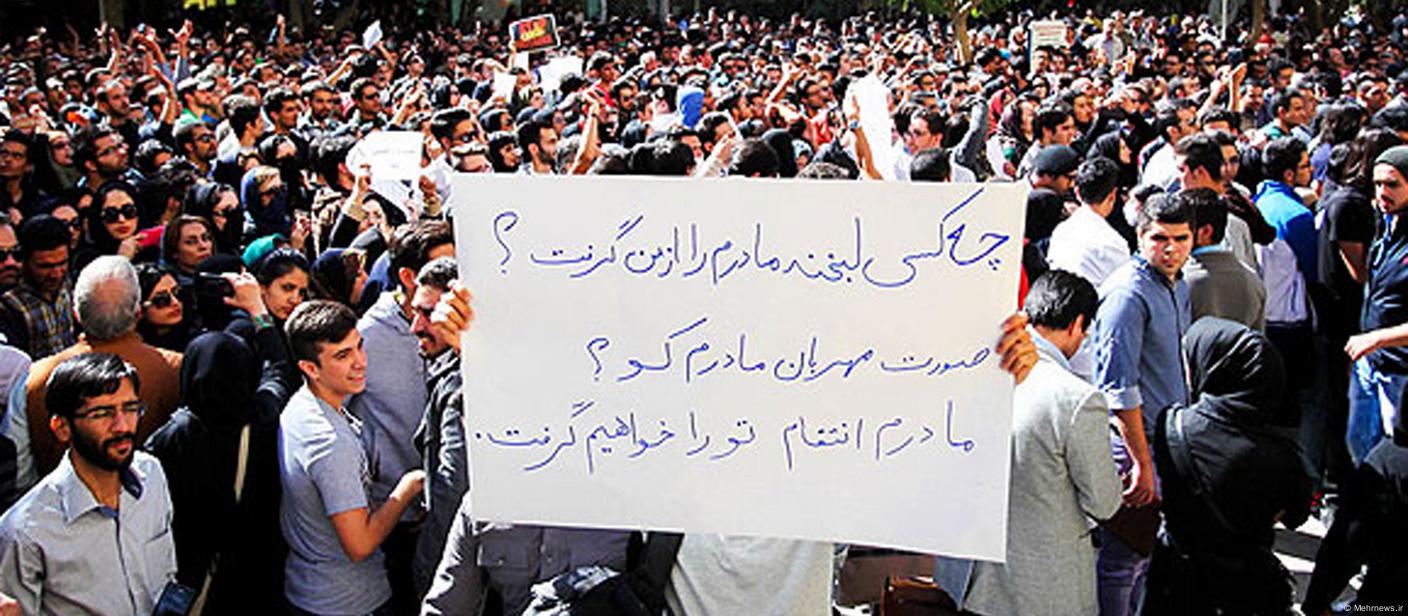 چه کسی لبخند مادرم را از من گرفت ؟
صورت مهربان مادرم کو ؟
مادرم انتقام تو را خواهیم گرفت.
© Mehrnews.ir